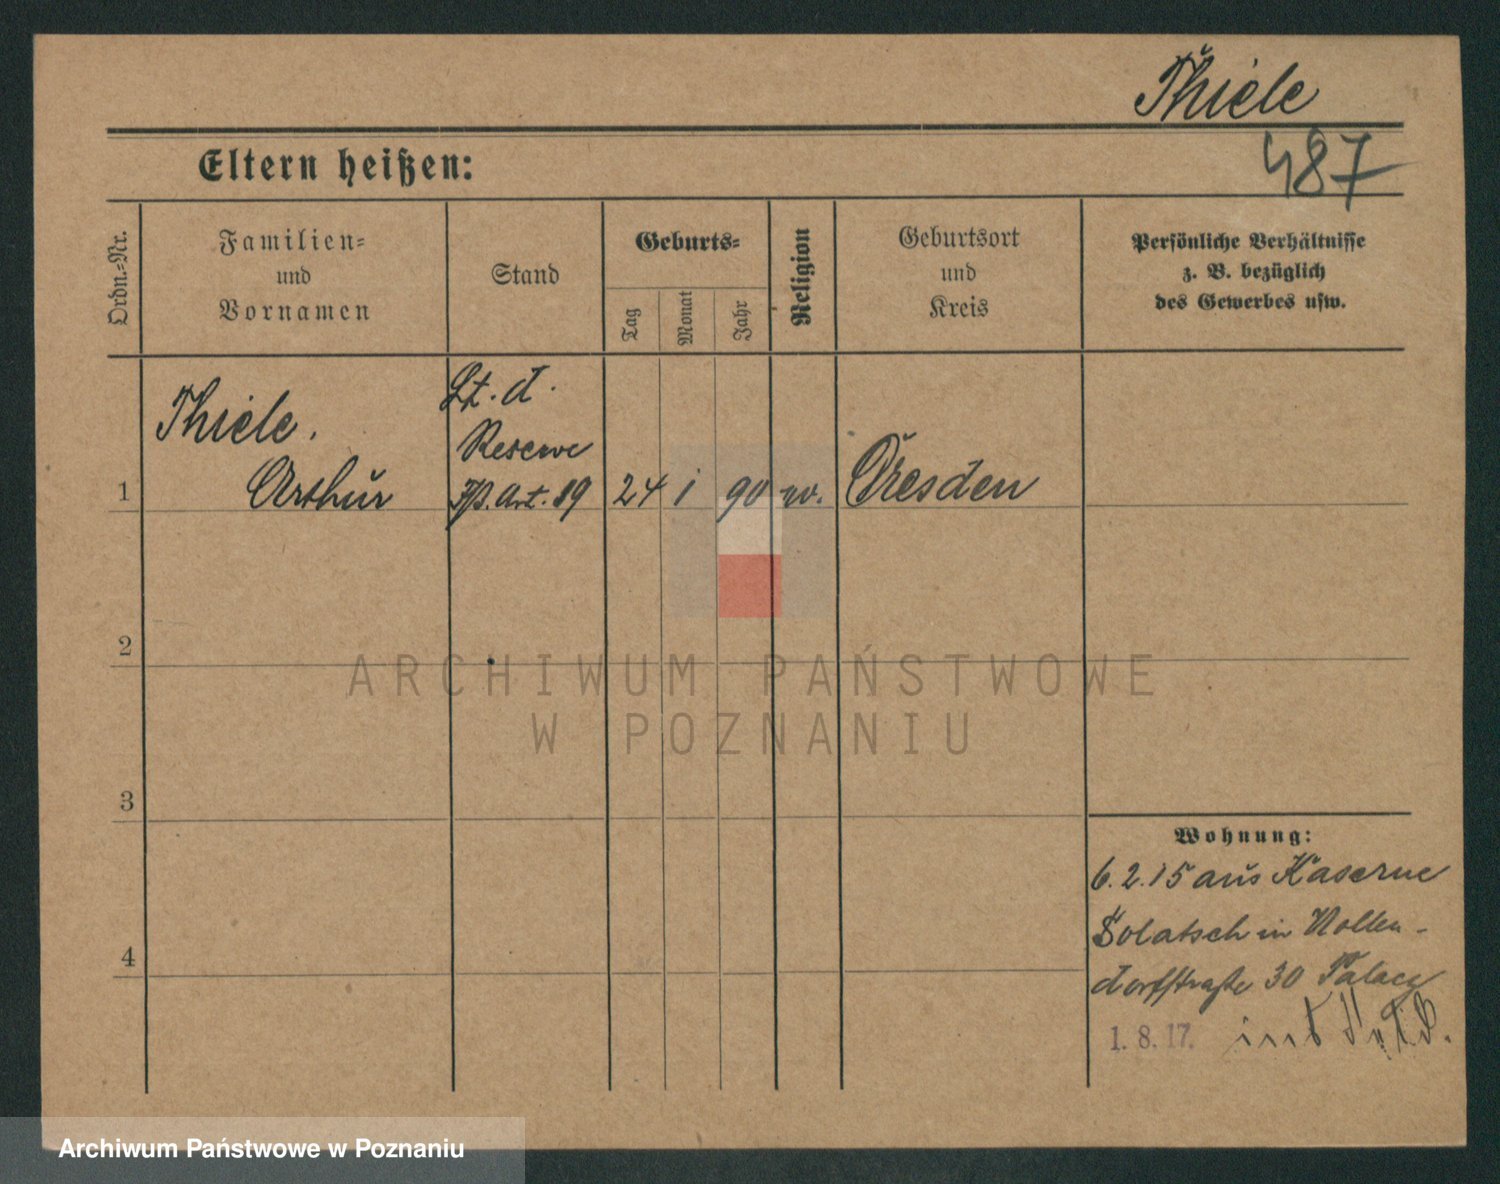 Thiele
Eltern heißen:
487
Ordn.=Nr.
Familien=
und
Vornamen
Stand
Geburts=
Tag
Monat
Jahr
Religion
Geburtsort
und
Kreis
Persönliche Verhältnisse
z. B. bezüglich
des Gewerbes usw.
1
Thiele.
Arthur
Lt. d.
Reserve
Art.
24
1
90
Dresden
2
3
4
ARCHIWUM PAŃSTWOWE
W POZNANIU
Wohnung:
6.2.15 aus Kaserne
Solatsch in Nollen-
dorfstraße 30
1. 8. 17. ins
Archiwum Państwowe w Poznaniu